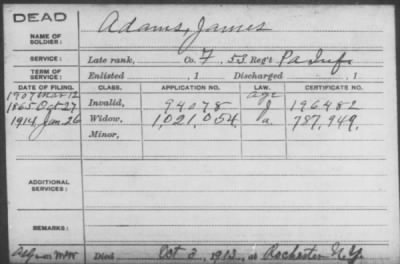 DEAD
Adams, James
NAME OF SOLDIER:
SERVICE: Late rank, Co. F, 53 Reg't Pa Inf.
TERM OF SERVICE: Enlisted , 1 Discharged , 1
DATE OF FILING. CLASS. APPLICATION NO. LAW. CERTIFICATE NO.
1907 Mar 12 age
1865 Oct 27 Invalid, 94078 J 196482
1914, Jan 26 Widow, 1,021,054 a. 787,949.
Minor,
ADDITIONAL SERVICES:
REMARKS:
Died Oct 2, 1913, at Rochester N.Y.